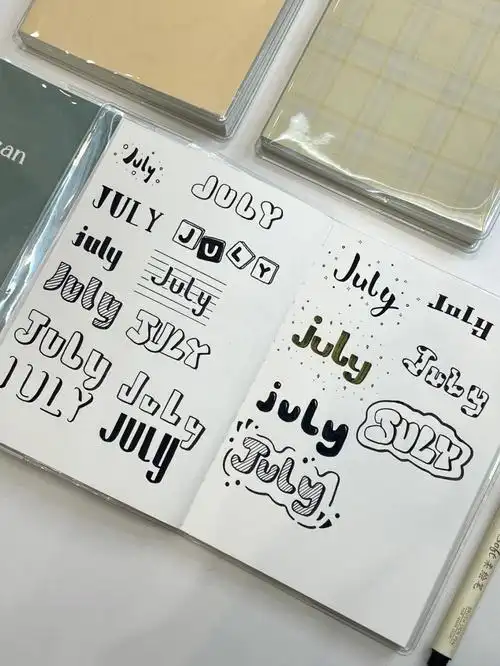 an
July
JULY
JULY
JULY
july
July
July
JULY
July
July
JULY
JULy
July
July
july
July
july
JULY
July